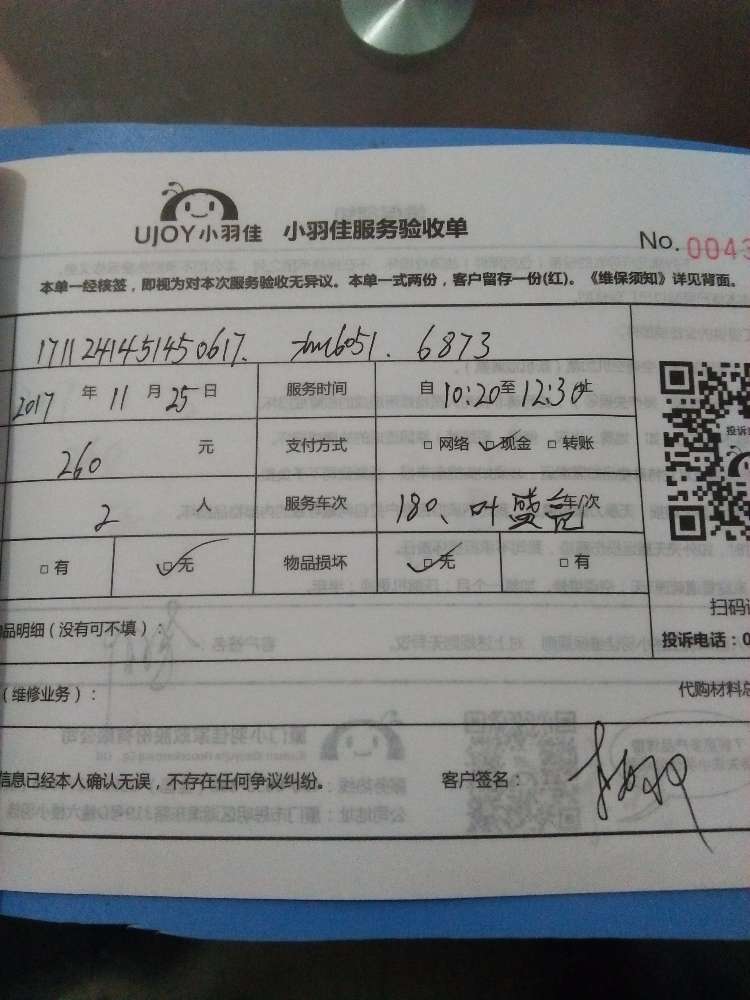 UJOY小羽佳 小羽佳服务验收单
No. 0043
本单一经核签，即视为对本次服务验收无异议。本单一式两份，客户留存一份(红)。《维保须知》详见背面。
1711241451450617. 6051. 6873
2017 年 11 月 25 日 服务时间 自 10:20 至 12:30 止
260 元 支付方式 □ 网络 □ 现金 □ 转账
2 人 服务车次 180、叶盛 车/次
□ 有 □ 无 物品损坏 □ 无 □ 有
品明细（没有可不填）：
扫码
投诉电话：0
（维修业务）：
代购材料总
信息已经本人确认无误，不存在任何争议纠纷。 客户签名：